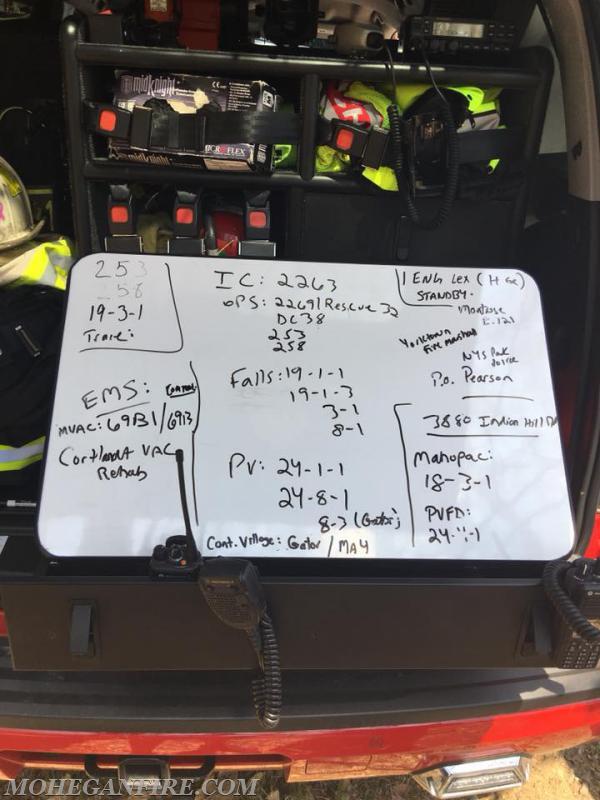 midknight
MICROFLEX
253
258
19-3-1
IC: 2263
OPS: 22691 Rescue 32
DC38
253
258
1 Eng Lex (
STANDBY.
Montrose
E-121
Yorktown
Fire Marshal
NYS Park
Police
P.O. Pearson
EMS:
MVAC: 69B1/6913
Cortlandt VAC
Rehab
Falls: 19-1-1
19-1-3
3-1
8-1
PV: 24-1-1
24-8-1
8-3 (Gator)
Cont. Village: Gator / MAY
3880 Indian Hill Rd
Mahopac:
18-3-1
PVFD:
MOHEGANFIRE.COM